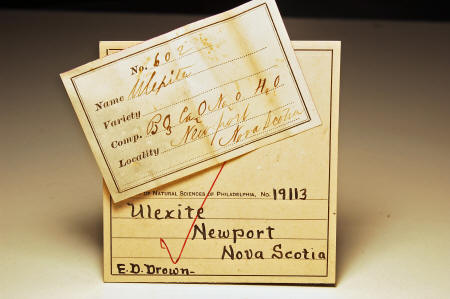 No. 602
Name Ulexite
Variety
Comp. B O3 CaO NaO HO
Locality Newport
Nova Scotia
OF NATURAL SCIENCES OF PHILADELPHIA, No. 19113
Ulexite
Newport
Nova Scotia
E.D. Drown-